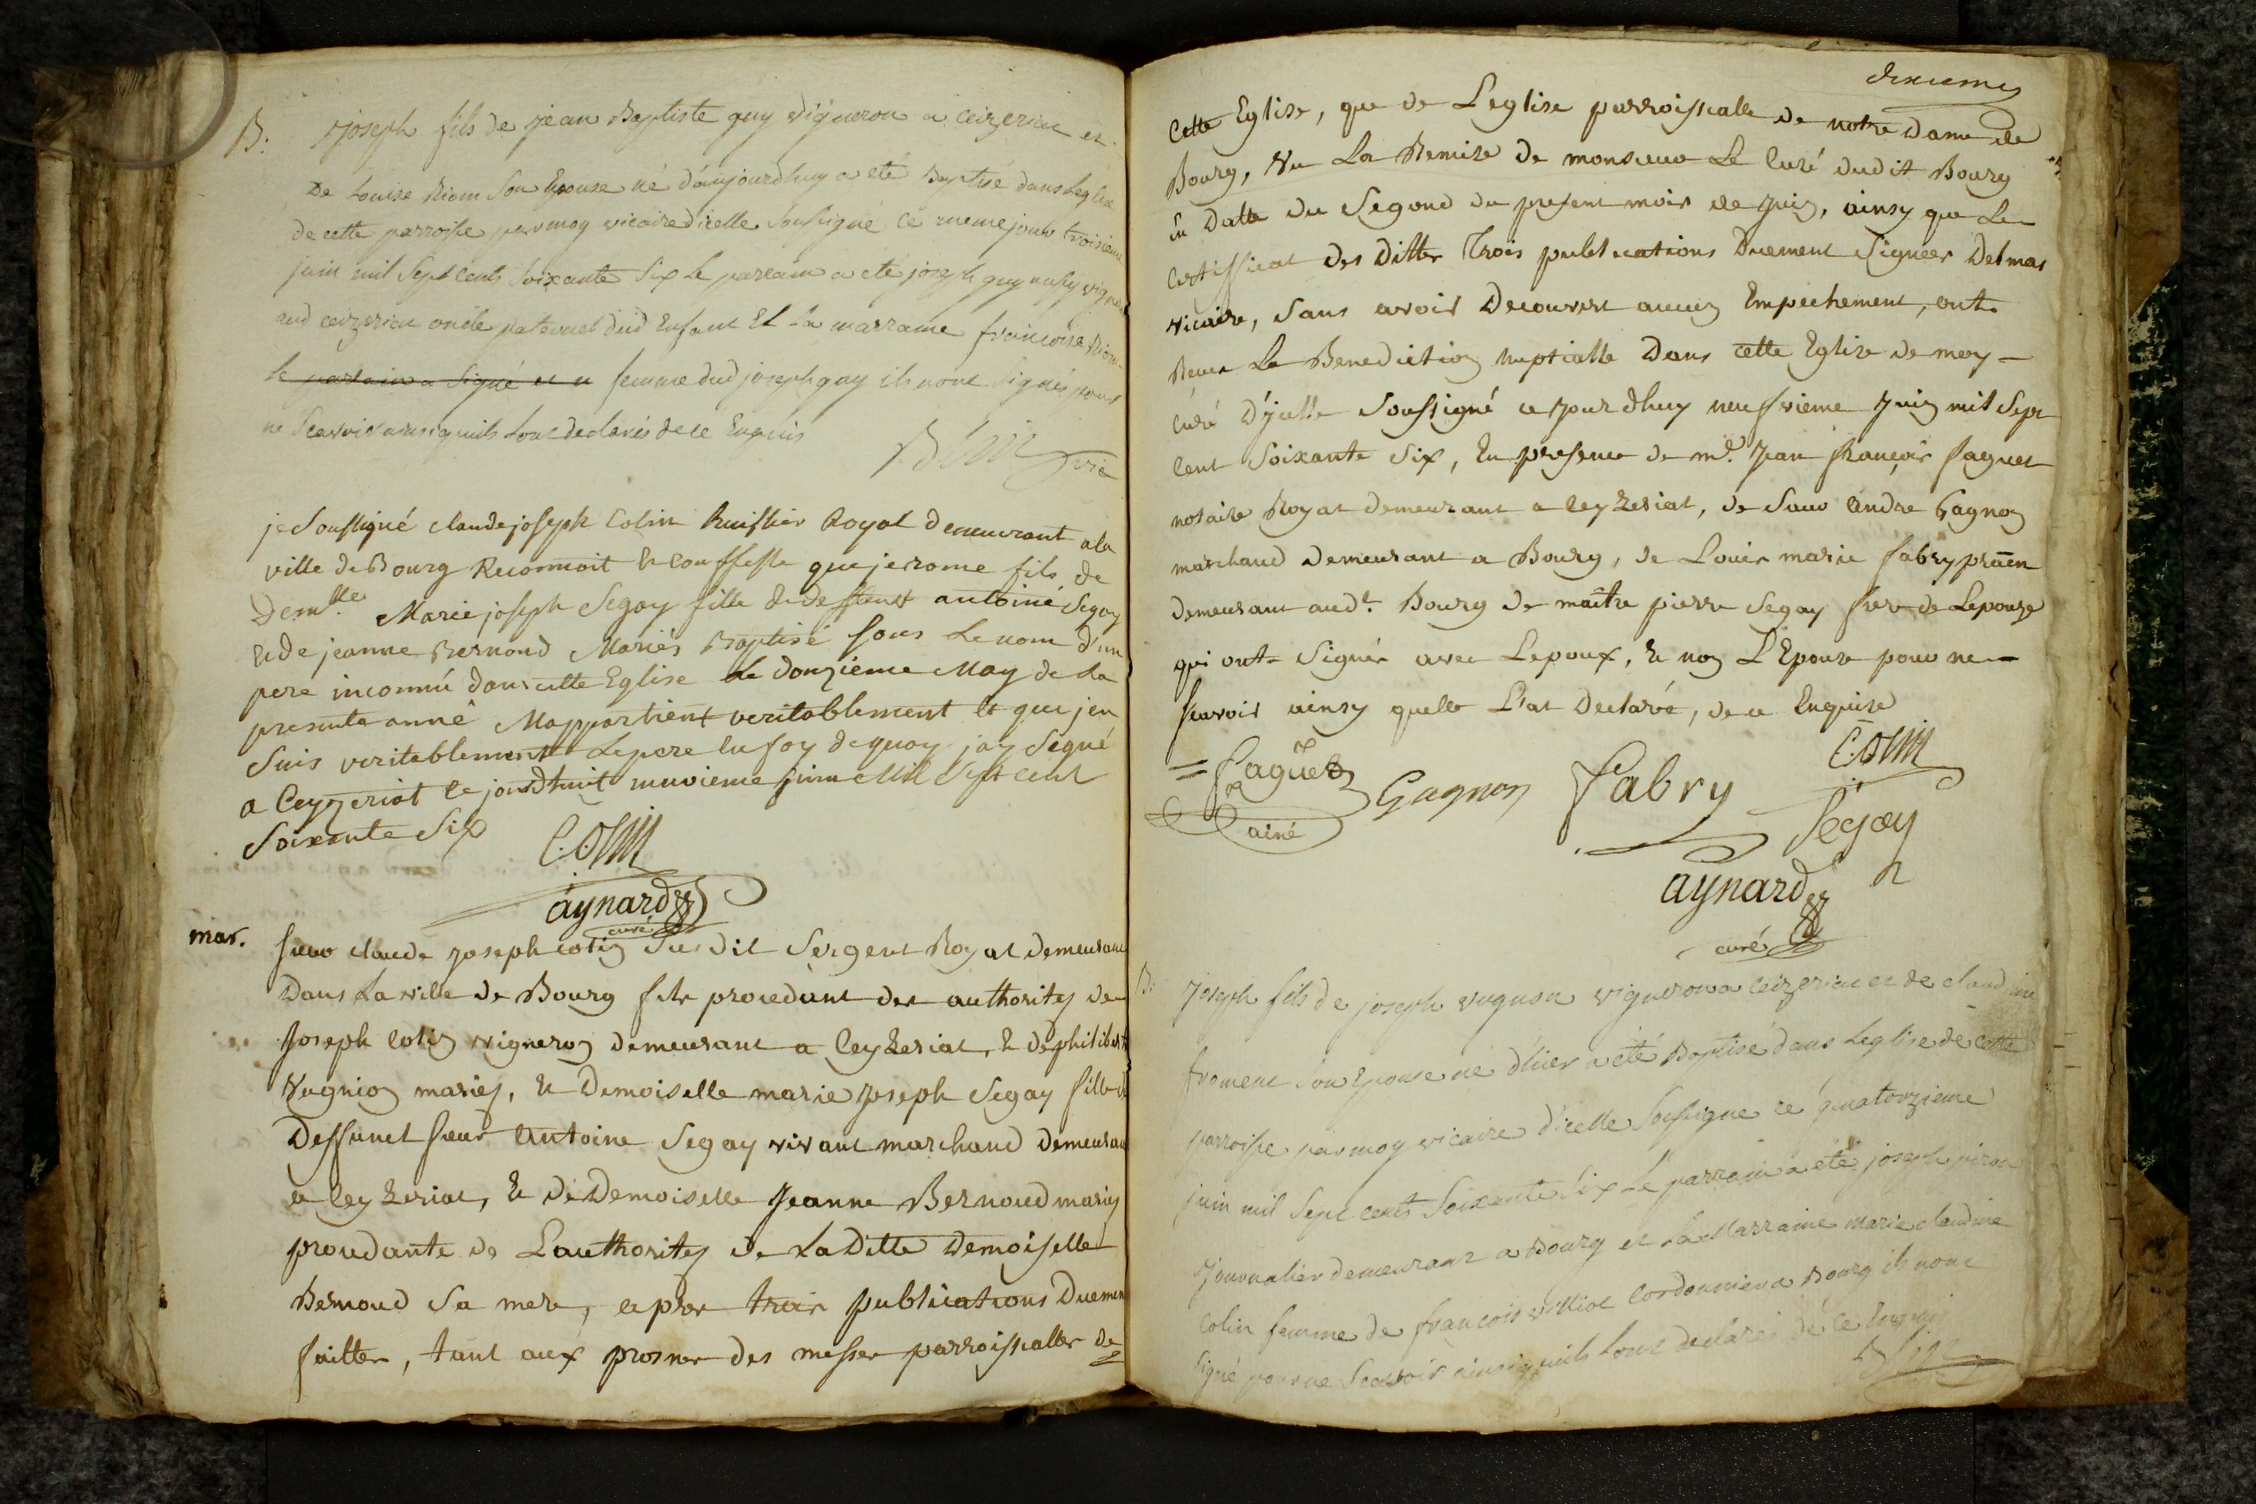 B: Joseph fils de jean Baptiste guy vigneron a ceizeriat et
De Louise Riom Son Epouse né d'aujourdhuy a eté Baptisé dans Leglise
de cette parroisse par moy vicaire d'icelle Soussigné ce meme jour troisieme
juin mil Sept cents Soixante Six Le parrain a eté joseph guy aussy vigneron
aud ceizeriat oncle paternel dud Enfant Et La marraine francoise Riom
le parrain a signé et a femme dud joseph guy ils n'ont signés pour
ne Scavoir ainsi quils Lont declarés de ce Enquis
vic
je Soussigné claude joseph Colin huissier Royal Demeurant a la
ville de Bourg Reconnoit et Confesse que jerome fils de
Demlle Marie joseph Segay fille de deffunt antoine Segay
et de jeanne Bernoud Mariés Baptisé sous Le nom d'un
pere inconnü dans cette Eglise le douzieme May de La
presente anné Mappartient veritablement et que jen
Suis veritablement Le pere En foy de quoy jay Signé
a Ceyzeriat le jourdhuit neuvieme juin Mil Sept cent
Soixante Six
Colin
aynard
curé
mar. sieur claude joseph colin Susdit Sergent Royal demeurant
Dans La ville de Bourg fils procedant des authoritey de
Joseph Colin vigneron demeurant a Ceyzeriat, & de philiberte
Vugnion mariey, & Demoiselle marie Joseph Segay fille de
Deffunct sieur Antoine Segay vivant marchand demeurant
a Ceyzeriat, & de Demoiselle Jeanne Bernoud mariey
procedante de Lauthoritey de La Ditte Demoiselle
Bernoud Sa mere, apres trois publications Duement
faittes, tant aux prosnes des messes parroissialles de
dixieme
Cette Eglise, que de L'eglise parroissialle de notre Dame de
Bourg, Vu La Remise de monsieur Le Curé dudit Bourg
en Datte du Segond du present mois de juin, ainsy que Le
Certifficat des Dittes Trois publications Duement Signées Delmas
vicaire, Sans avoir Decouvert aucun Empechement, ont
Receu La Benediction nuptialle Dans cette Eglise de moy
Curé D'jcelle Soussigné ce jourdhuy neufvieme juin mil Sept
Cent Soixante Six, En presence de me. Jean françois faguet
notaire Royal demeurant a Ceyzeriat, de Sieur Andre Gagnon
marchand demeurant a Bourg, de Louis marie fabry praēn
demeurant audt. Bourg de maitre pierre Segay frere de Lepouze
qui ont Signés avec Lepoux, & non L'Epouze pour ne
scavoir ainsy quelle L'at Declaré, de ce Enquise
faguet
ainé
Gagnon
Fabry
Colin
Segay
aynard
curé
B: Joseph fils de joseph vugnon vigneron a ceizeriat et de claudine
froment Son Epouse né d'hier a été Baptisé dans Leglise de cette
parroisse par moy vicaire d'icelle Soussigné ce quatorzieme
juin mil Sept cents Soixante Six Le parrain a été joseph
journalier demeurant a Bourg et La Marraine marie claudine
Colin femme de francois cordonnier a Bourg ils n'ont
signé pour ne Scavoir ainsi quils Lont declarés de ce Enquis